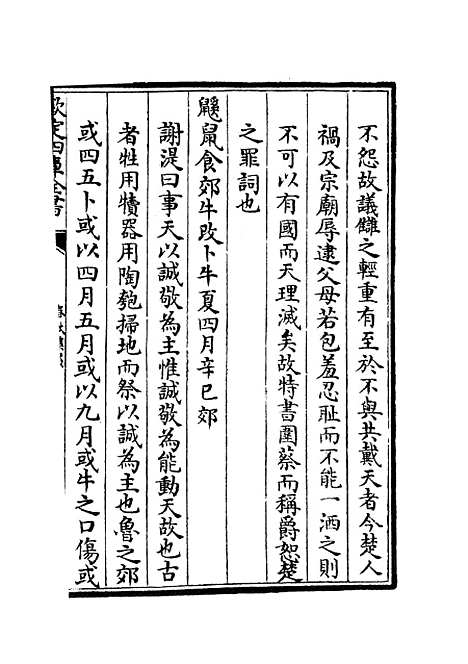 不怨故議讎之輕重有至於不與共戴天者今楚人
禍及宗廟辱逮父母若包羞忍耻而不能一洒之則
不可以有國而天理滅矣故特書圍蔡而稱爵恕楚
之罪詞也
鼷鼠食郊牛改卜牛夏四月辛巳郊
謝湜曰事天以誠敬為主惟誠敬為能動天故也古
者牲用犢器用陶匏掃地而祭以誠為主也魯之郊
或四五卜或以四月五月或以九月或牛之口傷或
欽定四庫全書